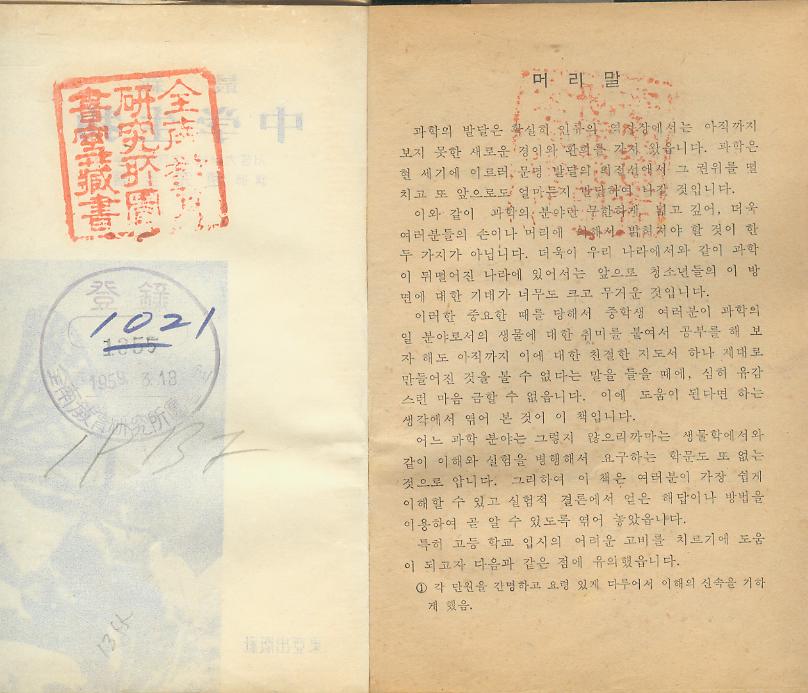 全南教育
研究所圖
書室藏書
登錄
1021
1355
1959. 3. 18
全南教育研究所
머 리 말
과학의 발달은 확실히 인류의 역사장에서는 아직까지
보지 못한 새로운 경이와 환희를 가져 왔읍니다. 과학은
현 세기에 이르러, 문명 발달의 최첨선에서 그 권위를 떨
치고 또 앞으로도 얼마든지 발달하여 나갈 것입니다.
이와 같이 과학의 분야란 무한하게 넓고 깊어, 더욱
여러분들의 손이나 머리에 의해서 밝혀져야 할 것이 한
두 가지가 아닙니다. 더욱이 우리 나라에서와 같이 과학
이 뒤떨어진 나라에 있어서는 앞으로 청소년들의 이 방
면에 대한 기대가 너무도 크고 무거운 것입니다.
이러한 중요한 때를 당해서 중학생 여러분이 과학의
일 분야로서의 생물에 대한 취미를 붙여서 공부를 해 보
자 해도 아직까지 이에 대한 친절한 지도서 하나 제대로
만들어진 것을 볼 수 없다는 말을 들을 때에, 심히 유감
스런 마음 금할 수 없읍니다. 이에 도움이 된다면 하는
생각에서 엮어 본 것이 이 책입니다.
어느 과학 분야는 그렇지 않으리까마는 생물학에서와
같이 이해와 실험을 병행해서 요구하는 학문도 또 없는
것으로 압니다. 그리하여 이 책은 여러분이 가장 쉽게
이해할 수 있고 실험적 결론에서 얻은 해답이나 방법을
이용하여 곧 알 수 있도록 엮어 놓았읍니다.
특히 고등 학교 입시의 어려운 고비를 치르기에 도움
이 되고자 다음과 같은 점에 유의했읍니다.
① 각 단원을 간명하고 요령 있게 다루어서 이해의 신속을 기하
게 했음.